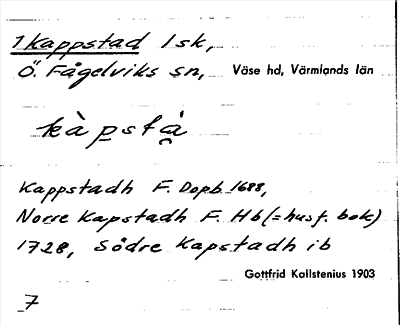 1 Kappstad 1 sk,
Ö. Fågelviks sn, Väse hd, Värmlands län
kàpstå̀
Kappstadh F. Dopb 1688,
Norre Kapstadh F. Hb (= husf. bok)
1728, Södre Kapstadh ib
Gottfrid Kallstenius 1903
7